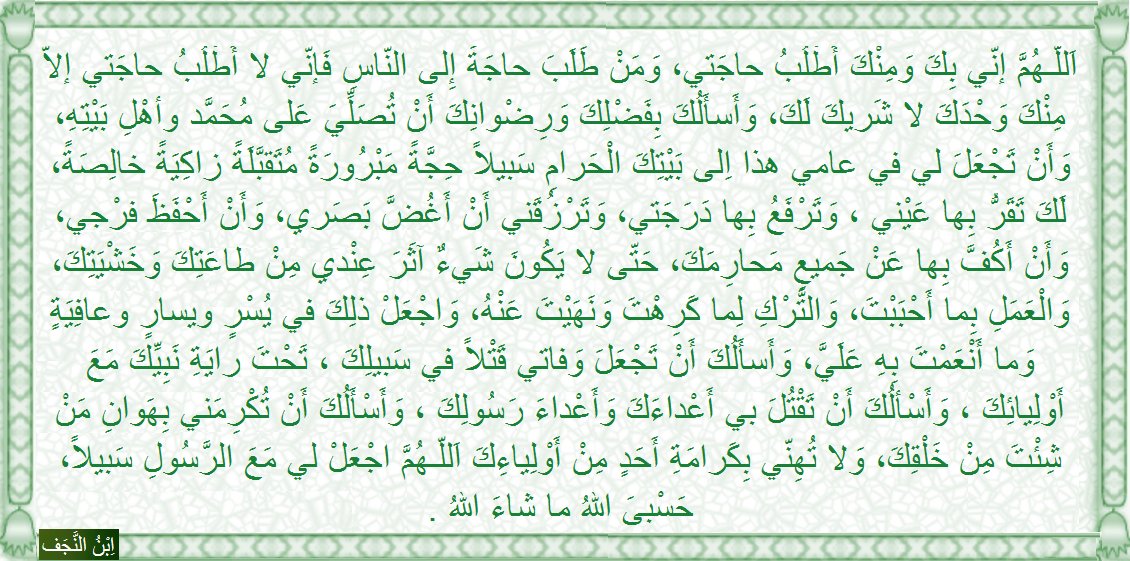 اَللّـهُمَّ اِنّي بِكَ وَمِنْكَ أَطْلُبُ حاجَتي، وَمَنْ طَلَبَ حاجَةً إِلى النّاسِ فَإنّي لا أَطْلُبُ حاجَتي إلاّ
مِنْكَ وَحْدَكَ لا شَريكَ لَكَ، وَأَسأَلُكَ بِفَضْلِكَ وَرِضْوانِكَ أَنْ تُصَلِّيَ عَلى مُحَمَّد وأهْلِ بَيْتِهِ،
وَأَنْ تَجْعَلَ لي في عامي هذا اِلى بَيْتِكَ الْحَرامِ سَبيلاً حِجَّةً مَبْرُورَةً مُتَقبَّلَةً زاكِيَةً خالِصَةً،
لَكَ تَقَرُّ بِها عَيْني ، وَتَرْفَعُ بِها دَرَجَتي، وَتَرْزُقَني أَنْ أَغُضَّ بَصَري، وَأَنْ أَحْفَظَ فَرْجي،
وَأَنْ أَكُفَّ بِها عَنْ جَميعِ مَحارِمَكَ، حَتّى لا يَكُونَ شَيءٌ آثَرَ عِنْدي مِنْ طاعَتِكَ وَخَشْيَتِكَ،
وَالْعَمَلِ بِما أَحْبَبْتَ، وَالتَّرْكِ لِما كَرِهْتَ وَنَهَيْتَ عَنْهُ، وَاجْعَلْ ذلِكَ في يُسْرٍ ويسارٍ وعافِيَةٍ
وَما أَنْعَمْتَ بِهِ عَلَيَّ، وَأَسأَلُكَ أَنْ تَجْعَلَ وَفاتي قَتْلاً في سَبيلِكَ ، تَحْتَ رايَةِ نَبِيِّكَ مَعَ
أَوْلِيائِكَ ، وَأَسْأَلُكَ أَنْ تَقْتُلَ بي أَعْداءَكَ وَأَعْداءَ رَسُولِكَ ، وَأَسْأَلُكَ أَنْ تُكْرِمَني بِهَوانِ مَنْ
شِئْتَ مِنْ خَلْقِكَ، وَلا تُهِنّي بِكَرامَةِ أَحَدٍ مِنْ أَوْلِياءِكَ اَللّـهُمَّ اجْعَلْ لي مَعَ الرَّسُولِ سَبيلاً،
حَسْبىَ اللهُ ما شاءَ اللهُ .
اِبْنُ النَّجَف